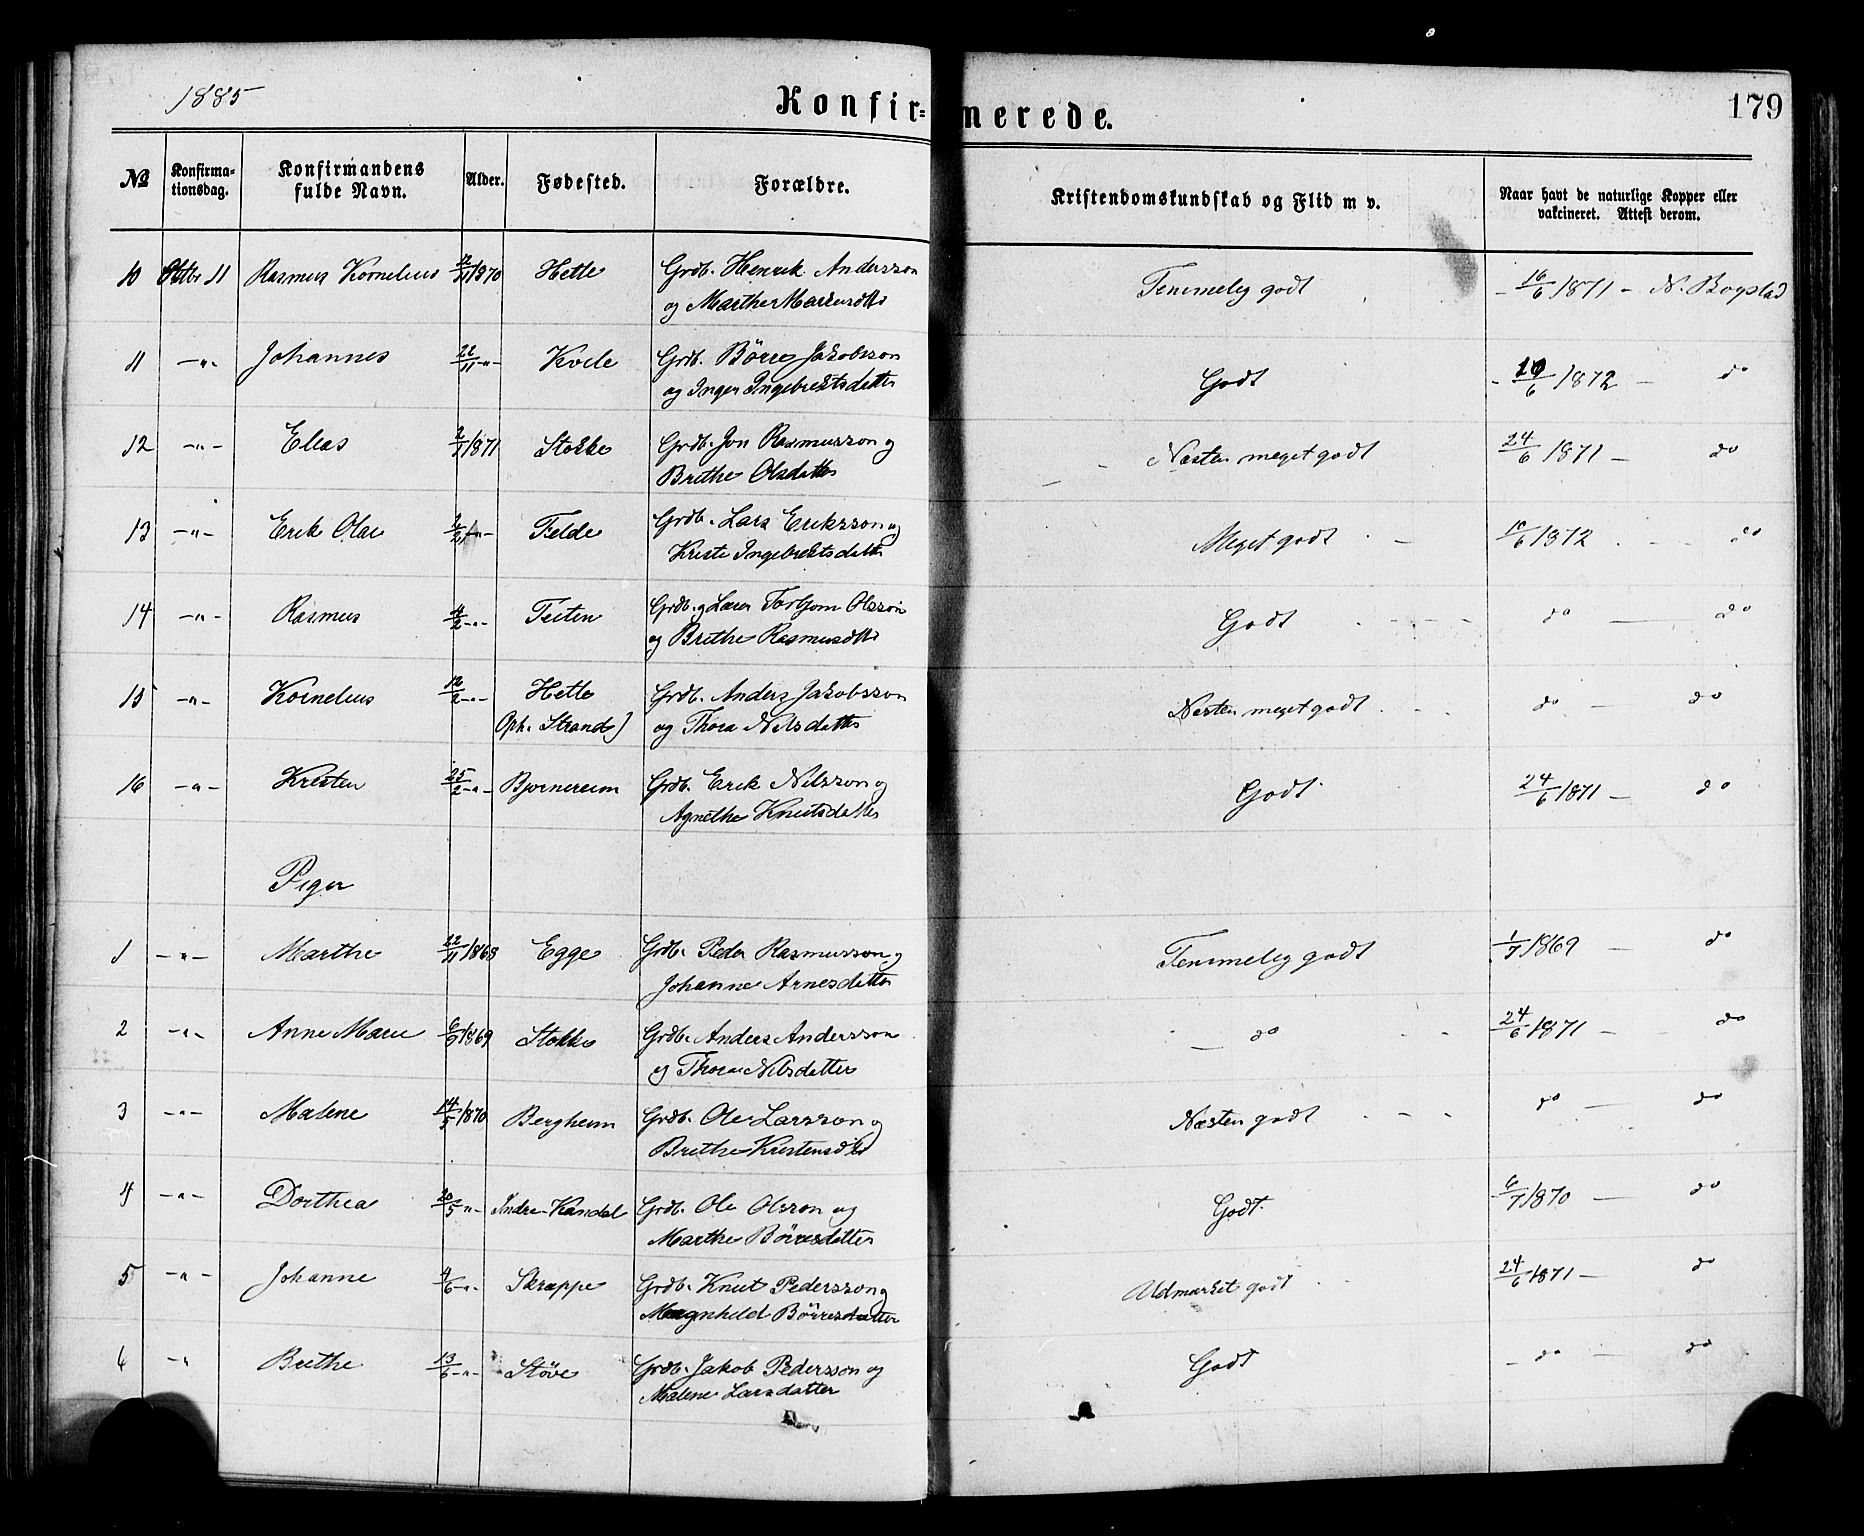 1885
Konfirmerede.
179
No Konfirmationsdag. Konfirmandens fulde Navn. Alder. Fødested. Forældre. Kristendomskundskab og Flid m v. Naar havt de naturlige Kopper eller vakcineret. Attest derom.
10 Oktbr 11 Rasmus Kornelius /1870 Hetle Grdb. Henrik Andersson Temmelig godt - 16/6 1871 - N. Bogstad
og Marthe
11 -"- Johannes 22/11 -"- Kvile Grdb. Börre Jakobsson Godt - 19/6 1872 - do
og Inger Ingebrektsdatter
12 -"- Elias 2/1 1871 Stokke Grdb. Jon Rasmusson og - Næsten meget godt 24/6 1871 - do
Brithe Olsdatter
13 -"- Erik Olai 2/2 -"- Felde Grdb. Lars Eriksson og Meget godt - /6 1872 - do
Kristi Ingebrektsdatter
14 -"- Rasmus 4/2 -"- Teiten Grdb. og Torbjørn Olsson Godt do - do
og Brithe Rasmusdtr
15 -"- Kornelius 12/2 -"- Hetle Grdb. Anders Jakobsson Næsten meget godt do - do
Oph. Strand) og Thora Nilsdatter
16 -"- Kristen 25/2 -"- Bjørnereim Grdb. Erik Nilsson og Godt 24/6 1871 - do
Agnethe Knutsdatter
Piger
1 -"- Marthe 22/11 1868 Egge Grdb. Peder Rasmusson og Temmelig godt 1/7 1869 - do
Johanne Arnesdatter
2 -"- Anne Marie 6/9 1869 Stokke Grdb. Anders Andersson - do - 24/6 1871 - do
og Thora Nilsdatter
3 -"- Malene 14/5 1870 Bergheim Grdb. Ole Larsson og Næsten godt do - do
Brithe Kristensdtr
4 -"- Dorthea 20/5 -"- Indre-Kandal Grdb. Ole Olsson og Godt 6/7 1870 - do
Marthe Börresdatter
5 -"- Johanne 4/6 -"- Skrappe Grdb. Knut Pedersson og Udmærket godt 24/6 1871 - do
Magnhild Börresdatter
6 -" Brithe 13/6 -"- Støve Grdb. Jakob Pedersson og Godt - do - do
Malene Larsdatter